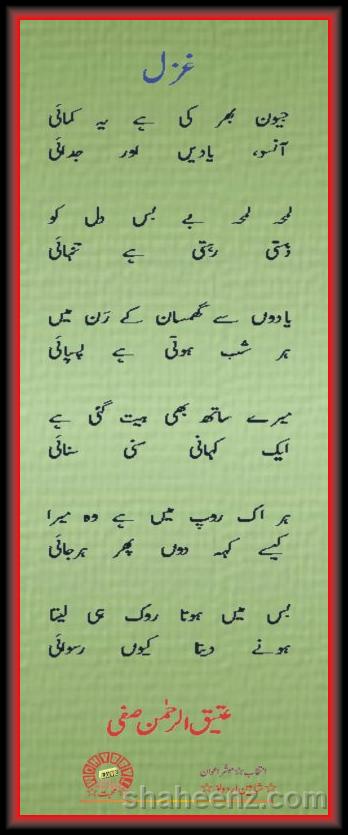 غزل
جیون بھر کی ہے یہ کمائی
آنسو، یادیں اور جدائی
لمحہ لمحہ بے بس دل کو
ڈستی رہتی ہے تنہائی
یادوں سے گھمسان کے رَن میں
ہر شب ہوتی ہے پسپائی
میرے ساتھ بھی بیت گئی ہے
ایک کہانی سنی سنائی
ہر اک روپ میں ہے وہ میرا
کیسے کہہ دوں پھر ہرجائی
بس میں ہوتا روک ہی لیتا
ہونے دیتا کیوں رسوائی
عتیق الرحمٰن صفی
انتخاب☆مبشر اعوان
shaheenz.com